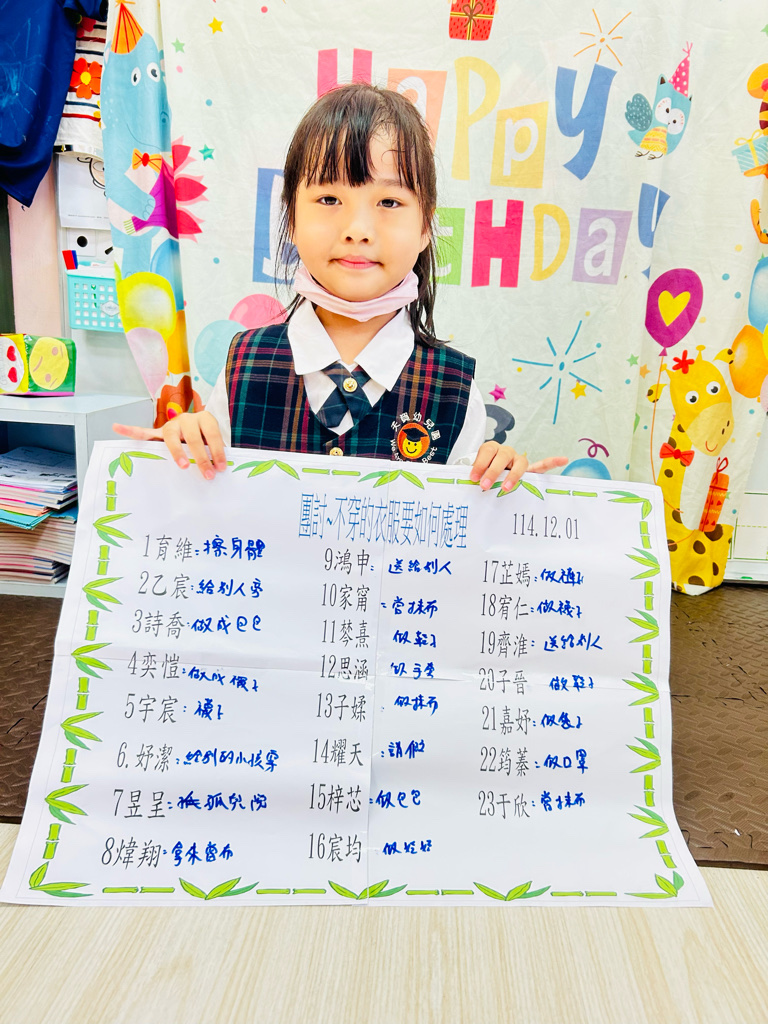 HaPPy
BiRTHDay
天爵幼兒園
團討~不穿的衣服要如何處理
114.12.01
1育維:擦身體
2乙宸:給別人穿
3詩喬:做成包包
4奕愷:做成
5宇宸:襪子
6.妤潔:給別的小孩穿
7昱呈:孤兒院
8煒翔:拿來當布
9鴻申:送給別人
10家甯:當抹布
11棽熹:做鞋子
12思涵:做手套
13子媃:做抹布
14耀天:請假
15梓芯:做包包
16宸均:做娃娃
17芷嫣:做褲子
18宥仁:做襪子
19齊淮:送給別人
20子晉:做鞋子
21嘉妤:做袋子
22筠蓁:做口罩
23于欣:當抹布